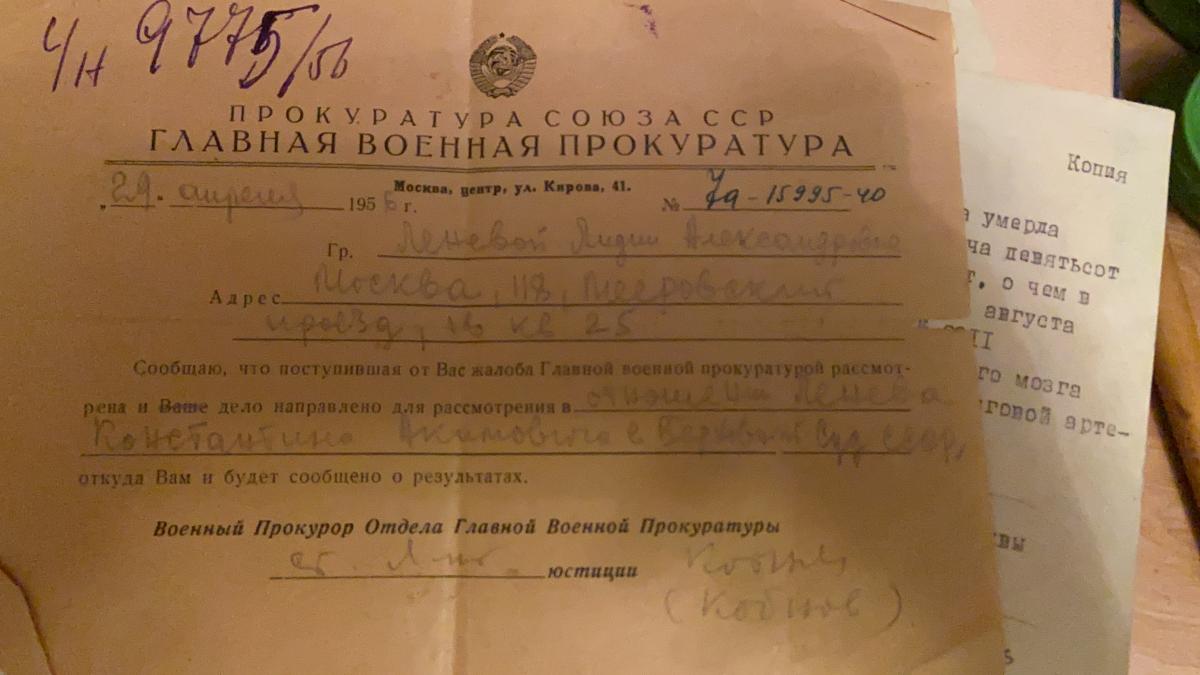 Ч/Н 9775/56
ПРОКУРАТУРА СОЮЗА ССР
ГЛАВНАЯ ВОЕННАЯ ПРОКУРАТУРА
„29. апреля 1956 г.
Москва, центр, ул. Кирова, 41.
№ 7а-15995-40
Гр. Леневой Лидии Александровне
Адрес Москва, 118,
проезд, кв 25
Сообщаю, что поступившая от Вас жалоба Главной военной прокуратурой рассмот-
рена и Ваше дело направлено для рассмотрения в отношении Ленева
Константина Акимовича в Верховный Суд СССР,
откуда Вам и будет сообщено о результатах.
Военный Прокурор Отдела Главной Военной Прокуратуры
ст. юстиции
Копия
умерла
девятьсот
о чем в
августа
мозга
арте-